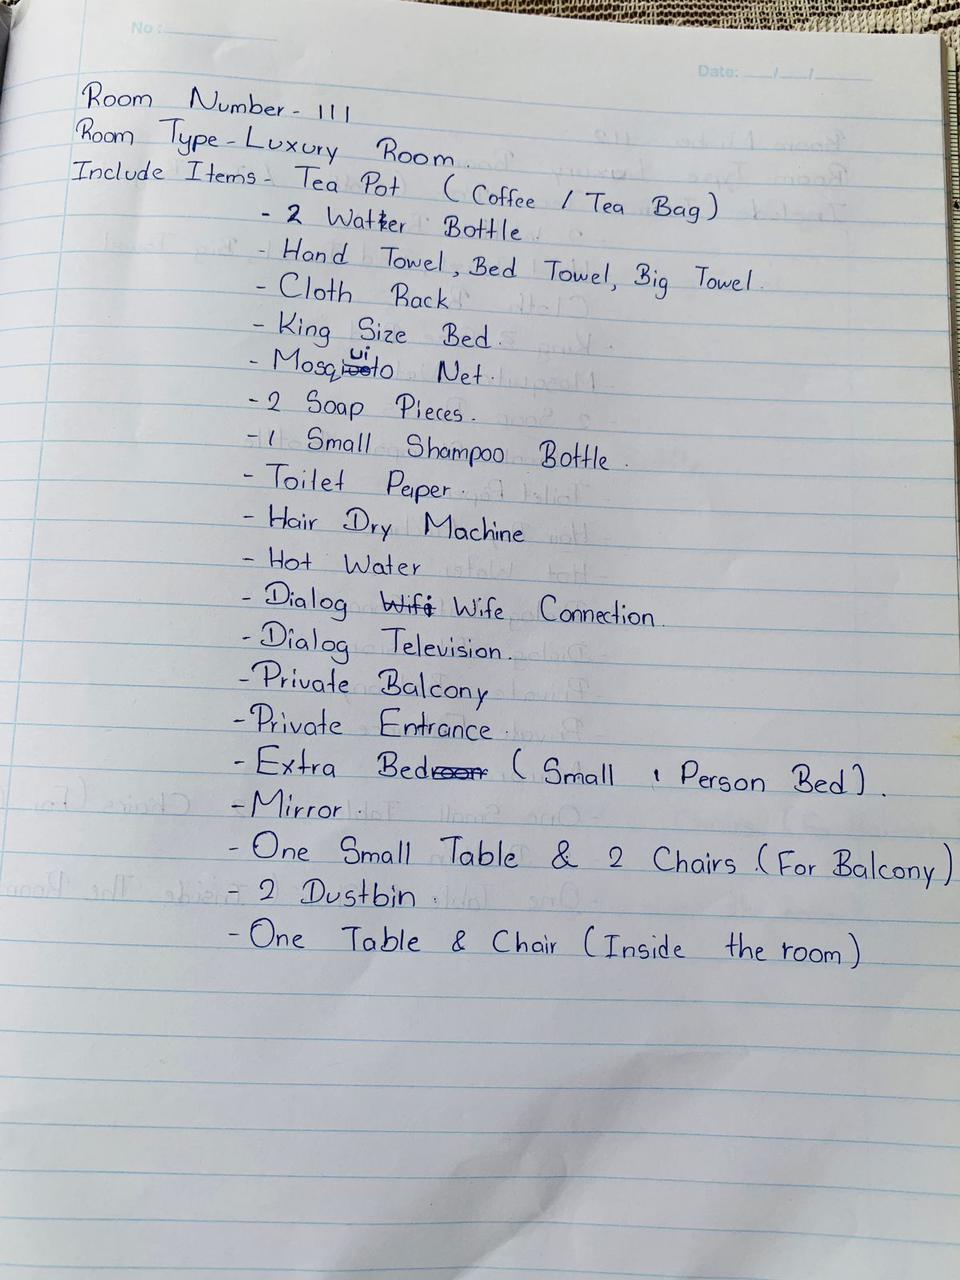 No :
Date: __/__/____
Room Number - 111
Room Type - Luxury Room.
Include Items - Tea Pot ( Coffee / Tea Bag )
- 2 Watter Bottle.
- Hand Towel, Bed Towel, Big Towel.
- Cloth Rack
- King Size Bed.
- Mosquito Net.
- 2 Soap Pieces.
- 1 Small Shampoo Bottle.
- Toilet Paper.
- Hair Dry Machine
- Hot Water
- Dialog Wifi Wife Connection.
- Dialog Television.
- Private Balcony
- Private Entrance.
- Extra Bedroom ( Small 1 Person Bed ).
- Mirror.
- One Small Table & 2 Chairs. (For Balcony)
- 2 Dustbin.
- One Table & Chair (Inside the room)